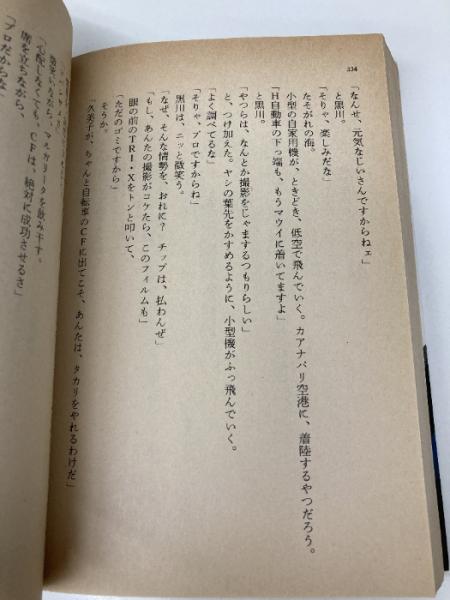 234
「なんせ、元気なじいさんですからねェ」
と黒川。
「そりゃ、楽しみだな」
たそがれの海。
小型の自家用機が、ときどき、低空で飛んでいく。カアナパリ空港に、着陸するやつだろう。
「H自動車の下っ端も、もうマウイに着いてますよ」
と黒川。
「やつらは、なんとか撮影をじゃまするつもりらしい」
と、つけ加えた。ヤシの葉先をかすめるように、小型機がふっ飛んでいく。
「よく調べてるな」
「そりゃ、プロですからね」
黒川は、ニッと微笑う。
「なぜ、そんな情勢を、おれに? チップは、払わんぜ」
「もし、あんたの撮影がコケたら、このフィルムも」
眼の前のTRI・Xをトンと叩いて、
「ただのゴミですから」
そうか。
「久美子が、ちゃんと自転車のCFに出てこそ、あんたは、タカリをやれるわけだ」
ながら、マルガリータを飲み干す。
「心配しなくても、CFは、絶対に成功させるさ」
席を立ちながら、
「プロだからな